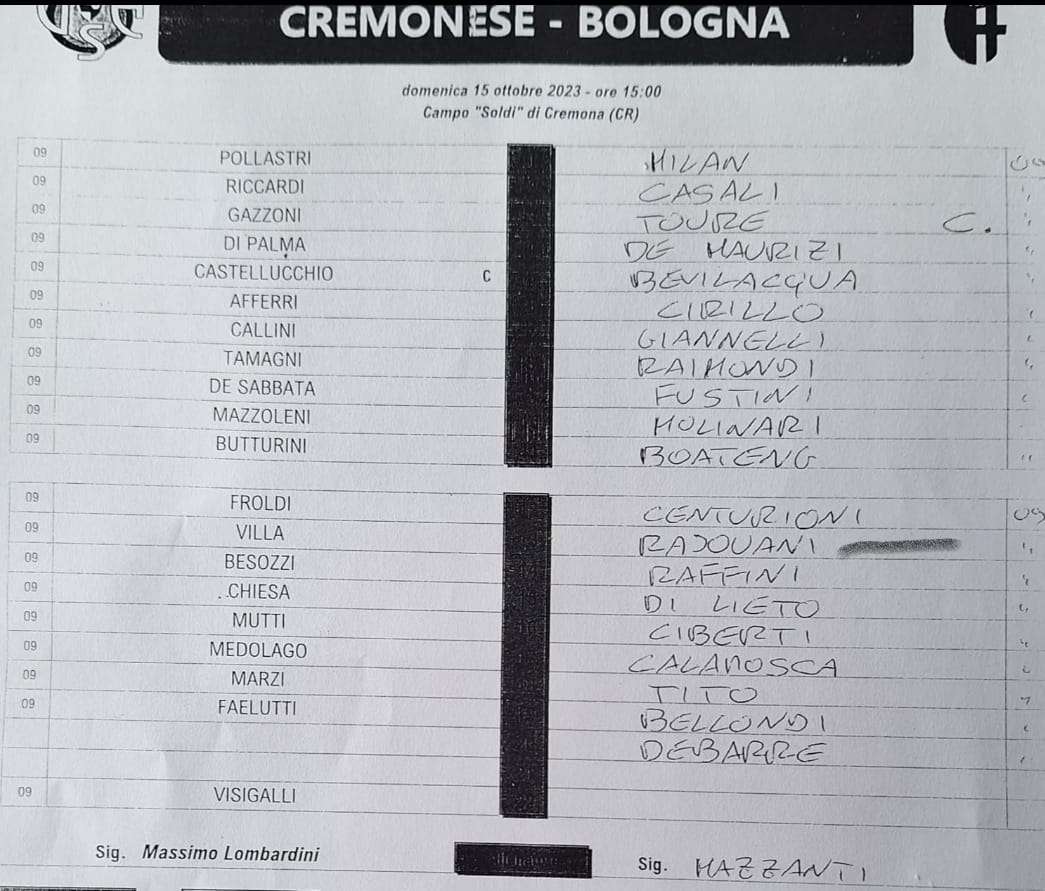 CREMONESE - BOLOGNA
domenica 15 ottobre 2023 - ore 15:00
Campo "Soldi" di Cremona (CR)
09 POLLASTRI MILAN 09
09 RICCARDI CASALI "
09 GAZZONI TOURE C. "
09 DI PALMA DE MAURIZI "
09 CASTELLUCCHIO C BEVILACQUA "
09 AFFERRI CIRILLO
09 CALLINI GIANNELLI
09 TAMAGNI RAIMONDI "
09 DE SABBATA FUSTINI
09 MAZZOLENI MOLINARI
09 BUTTURINI BOATENG "
09 FROLDI CENTURIONI 09
09 VILLA RADOUANI "
09 BESOZZI RAFFINI "
09 CHIESA DI LIETO "
09 MUTTI CIBERTI "
09 MEDOLAGO CALAMOSCA
09 MARZI TITO
09 FAELUTTI BELLONDI
DEBARRE
09 VISIGALLI
Sig. Massimo Lombardini Sig. MAZZANTI